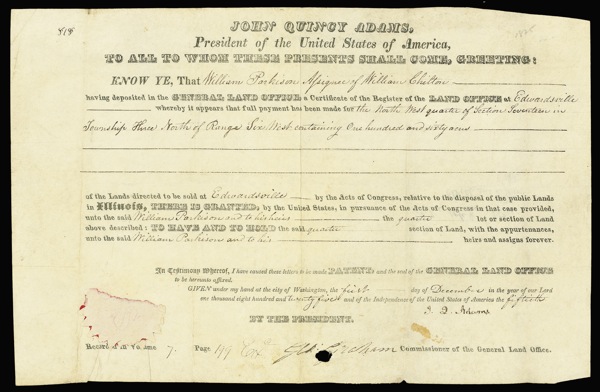 818
JOHN QUINCY ADAMS,
President of the United States of America,
TO ALL TO WHOM THESE PRESENTS SHALL COME, GREETING:
KNOW YE, That William Parkison Assignee of William Chilton
having deposited in the GENERAL LAND OFFICE a Certificate of the Register of the LAND OFFICE at Edwardsville
whereby it appears that full payment has been made for the North West quarter of Section Seventeen in
Township Three North of Range Six West containing One hundred and sixty acres
of the Lands directed to be sold at Edwardsville by the Acts of Congress, relative to the disposal of the public Lands
in Illinois, THERE IS GRANTED, by the United States, in pursuance of the Acts of Congress in that case provided,
unto the said William Parkison and to his heirs the quarter lot or section of Land
above described: TO HAVE AND TO HOLD the said quarter section of Land, with the appurtenances,
unto the said William Parkison and to his heirs and assigns forever.
In Testimony Whereof, I have caused these letters to be made PATENT, and the seal of the GENERAL LAND OFFICE
to be hereunto affixed.
GIVEN under my hand at the city of Washington, the first day of December in the year of our Lord
one thousand eight hundred and twenty five and of the Independence of the United States of America the fiftieth
J. Q. Adams
BY THE PRESIDENT.
Record in Volume 7. Page 199 Geo: Graham Commissioner of the General Land Office.